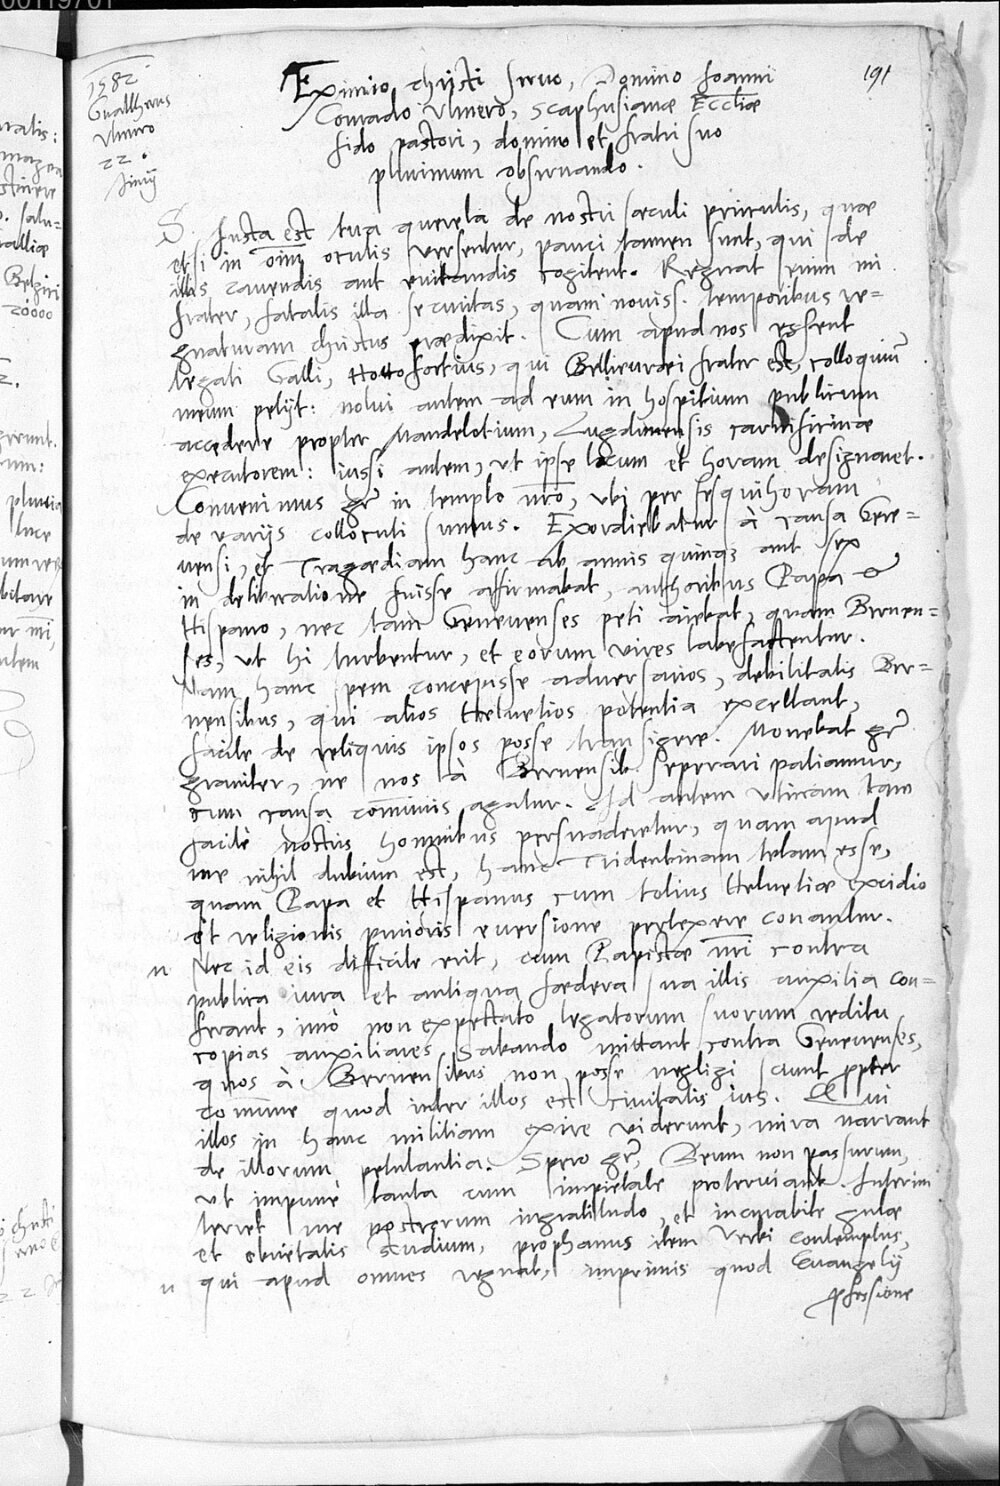 1582
Gualtherus
Ulmero
22.
Junij
191
Eximio Christi servo, Domino Joanni
Conrado Ulmero, Scaphusianæ Eccliæ
fido pastori, domino et fratri suo
plurimum observando.
S. Justa est tua querela de nostri sæculi periculis, quæ
etsi in oim̄ oculis versentur, pauci tamen sunt, qui de
illis cavendis aut evitandis cogitent. Regnat enim mi
frater, fatalis illa securitas, quam noviss. temporibus re=
gnaturam Christus prædixit. Cum apud nos essent
legati Galli, Hottofortius, qui Bellieuræi frater est, colloquiū
meum petijt: nolui autem ad eum in hospitium publicum
accedere propter Mandelotium, Lugdunensis carnificinæ
executorem: iussi autem, ut ipse locum et horam designaret.
Convenimus gr̄ in templo nr̄o, ubi per sesquihoram
de varijs colloculi sumus. Exordiebatur à causa Gene=
vensi, et Tragœdiam hanc ab annis quinqз aut sex
in deliberatione fuisse affirmabat, authoribus Papa et
Hispano, nec tam Genevenses peti aiebat, quam Bernen=
ses, ut hi turbentur, et eorum vires labefactentur.
Nam hanc spem concepisse adversarios, debilitatis Ber=
nensibus, qui alios Helvetios potentia excellant,
facile de reliquis ipsos posse transigere. Monebat gr̄
graviter, ne nos à Bernensib. seperari patiamur,
cum causa com̄unis agatur. Id autem utinam tam
facilè nostris hominibus persuaderetur, quam apud
me nihil dubium est, hanc Tridentinam telam esse,
quam Papa et Hispanus cum totius Helvetiæ excidio
et religionis purioris eversione pertexere conantur.
Nec id eis difficile erit, cum Papistæ nr̄i contra
publica iura et antiqua fœdera sua illis auxilia con=
ferant, imò non expectato legatorum suorum reditu
copias auxiliares Sabaudo mittant contra Genevenses,
quos à Bernensibus non posse negligi sciunt ppter
com̄une quod inter illos est civitatis ius. Qui
illos in hanc militiam exire viderunt, mira narrant
de illorum petulantia. Spero gr̄, Deum non passurum,
ut impunè tanta cum impietate proterviant. Interim
terret me nostrorum ingratitudo, et incurabile gulæ
et ebrietatis studium, prophanus item Verbi contemptus,
qui apud omnes regnat, imprimis quod Evangelij
pfessione